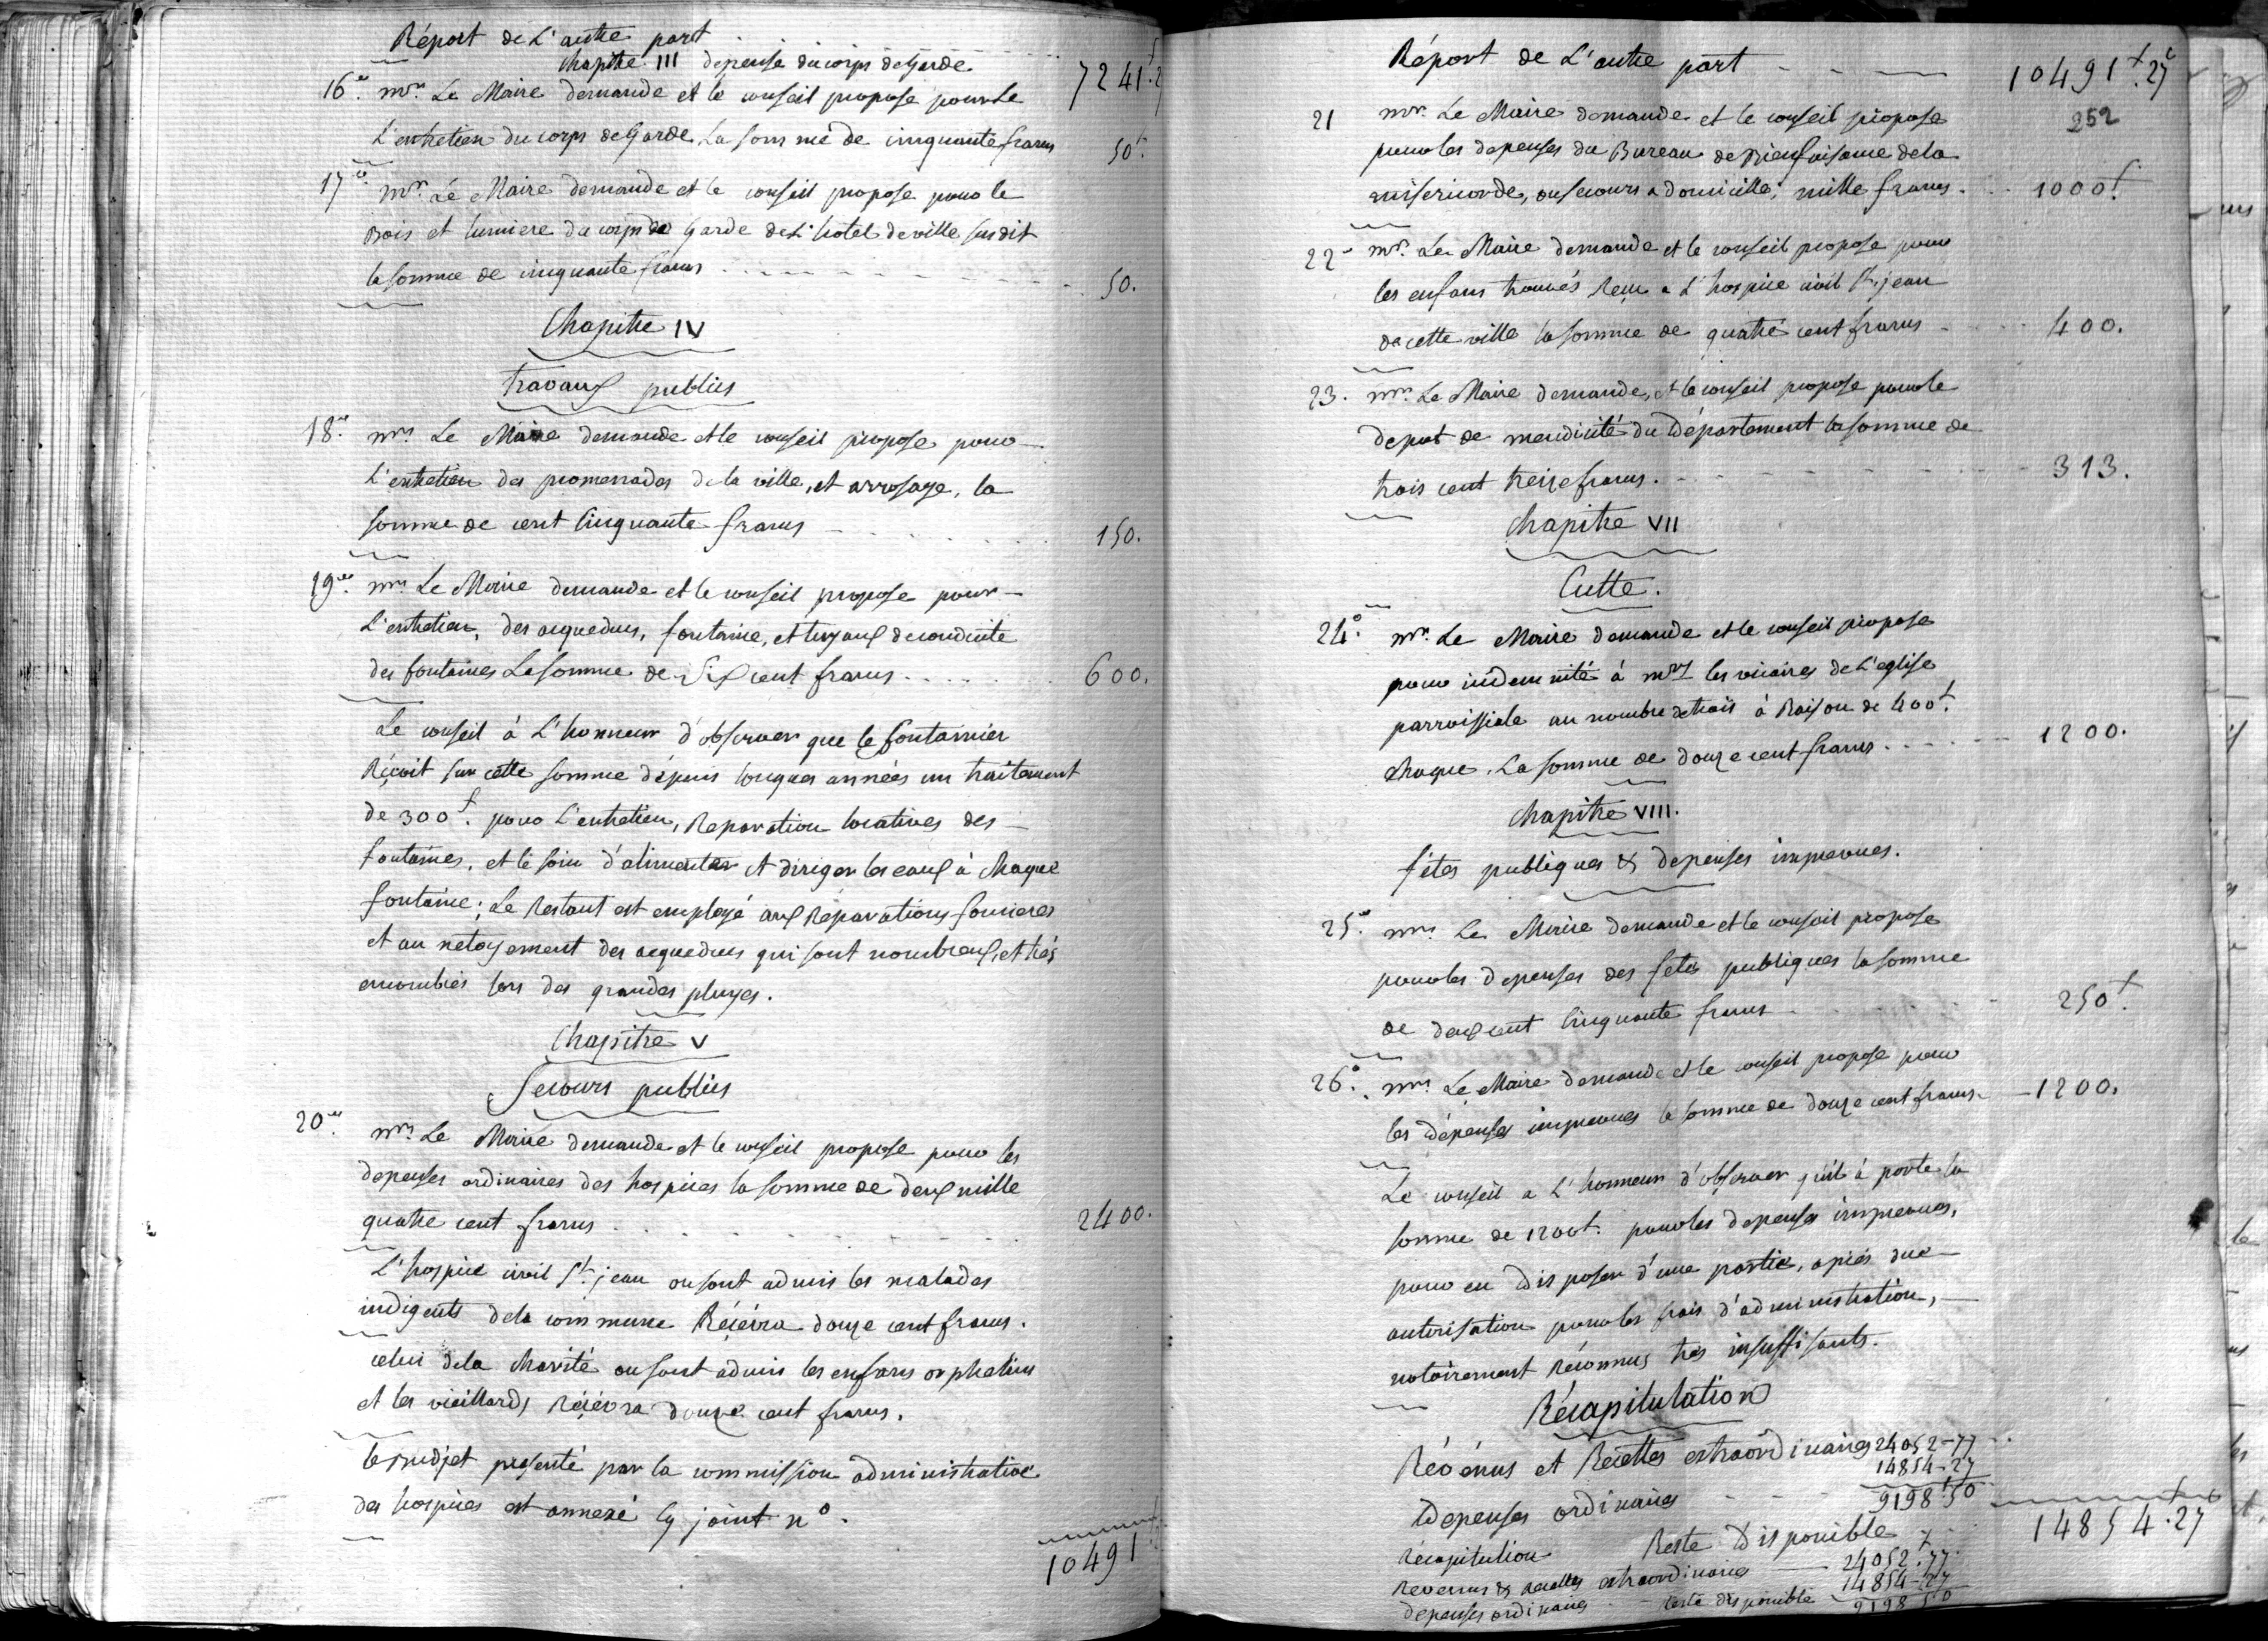 Réport de L'autre part
Chapitre III depense du corps de garde
7241f.2
16e. mr. Le Maire demande et le conseil propose pour Le
L'entretien du corps de Garde La somme de cinquante francs 50f.
17e. mr. Le Maire demande et le conseil propose pour le
Bois et lumiere du corps de Garde de L'hotel de ville susdit
la somme de cinquante francs 50.
Chapitre IV
travaux publics
18e. mr. Le Maire demande et le conseil propose pour
L'entretien des promenades de la ville, et arrosage, la
somme de cent cinquante francs 150.
19e. mr. Le Maire demande et le conseil propose pour
L'entretien, des acqueducs, fontaine, et tuyaux de conduite
des fontaines La somme de Six cent francs 600.
Le conseil à L'honneur d'observer que le fontainier
Réçoit sur cette somme dépuis longues années un traitement
de 300f. pour L'entretien, Reparation locatives des
fontaines, et le soin d'alimenter et diriger les eaux à chaque
fontaine; Le Restant est employé aux Réparations foncieres
et au netoyement des acqueducs qui sont nombreux, et très
encombrés lors des grandes pluyes.
Chapitre V
Secours publics
20e. mr. Le Maire demande et le conseil propose pour les
depenses ordinaires des hospices la somme de deux mille
quatre cent francs 2400.
L'hospice civil St. jean ou sont admis les malades
indigents de la commune Réçévra douze cent francs.
celui de la charité ou sont admis les enfans orphelins
et les vieillards Réçévra douze cent francs.
le Budjet présenté par la commission administrative
des hospices est annexé cy joint no.
10491
Réport de L'autre part 10491f.27c
252
21 mr. Le Maire demande et le conseil propose
pour les depenses du Bureau de Bienfaisance de la
misericorde, ou secours a domicille, mille francs. 1000f.
22e mr. Le Maire demande et le conseil propose pour
les enfans trouvés Reçu a L'hospice civil St. jean
de cette ville la somme de quatre cent francs 400.
23. mr. Le Maire demande, et le conseil propose pour le
depot de mendicité du Département la somme de
trois cent treize francs. 313.
Chapitre VII
Culte.
24o. mr. Le Maire demande et le conseil propose
pour indemnité à mrs les vicaires de L'eglise
parroissiale au nombre de trois à Raison de 400f.
chaque. La somme de douze cent francs 1200.
Chapitre VIII.
fêtes publiques & depenses imprevues.
25e. mr. Le Maire demande et le conseil propose
pour les depenses des fetes publiques la somme
de deux cent cinquante francs 250f.
26o. mr. Le Maire demande et le conseil propose pour
les dépenses imprevues la somme de douze cent francs 1200.
Le conseil a L'honneur d'observer qu'il à porte la
somme de 1200f. pour les depenses imprevues,
pour en disposer d'une partie, après due
autorisation pour les frais d'administration,
notoirement Réconnus très insuffisants.
Récapitulation
Révénus et Récettes extraordinaires 24052-77
Depenses ordinaires 14854-27
9198f50
Reste Disponible 14854f.27
Récapitulation
Revenus & Recettes extraordinaires 24052f.77
depenses ordinaires 14854-27
reste disponible 9198 50